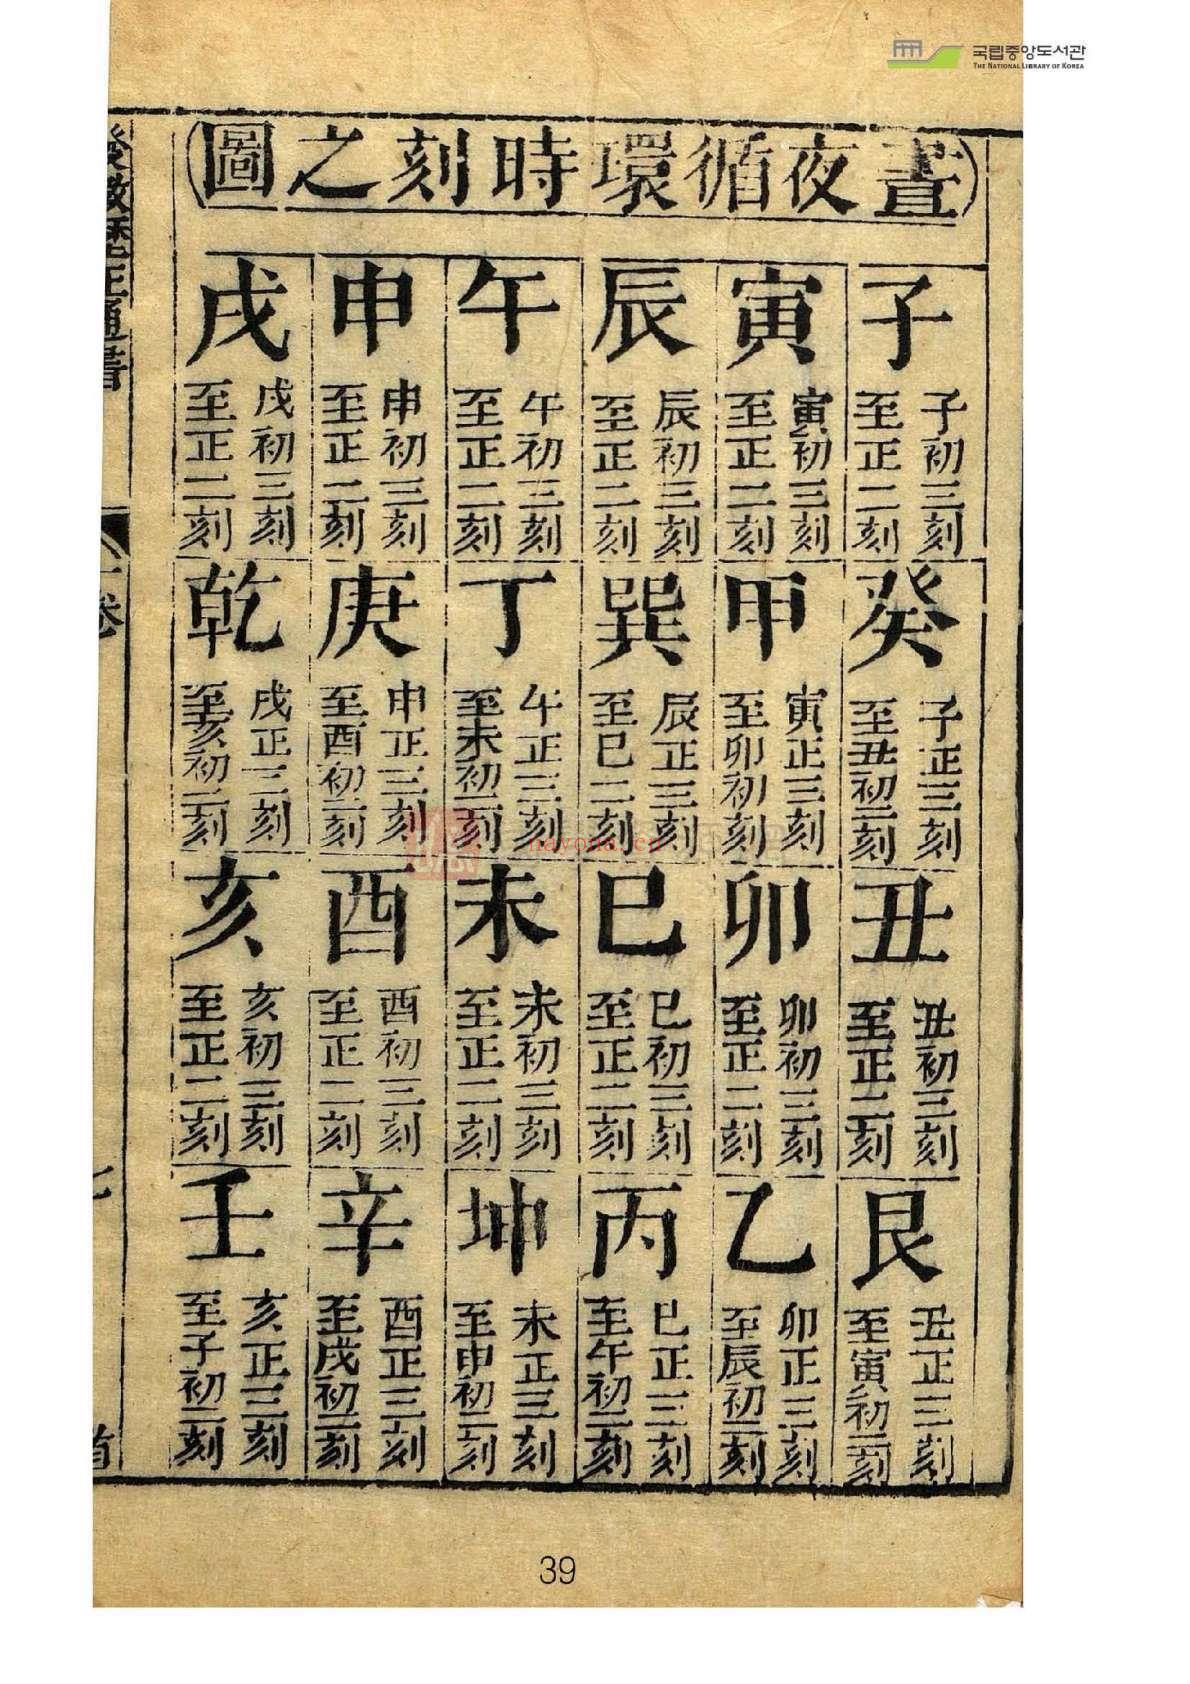 국립중앙도서관
THE NATIONAL LIBRARY OF KOREA
晝夜循環時刻之圖
子
子初三刻
至正二刻
癸
子正三刻
至丑初二刻
丑
丑初三刻
至正二刻
艮
丑正三刻
至寅初二刻
寅
寅初三刻
至正二刻
甲
寅正三刻
至卯初二刻
卯
卯初三刻
至正二刻
乙
卯正三刻
至辰初二刻
辰
辰初三刻
至正二刻
巽
辰正三刻
至巳二刻
巳
巳初三刻
至正二刻
丙
巳正三刻
至午初二刻
午
午初三刻
至正二刻
丁
午正三刻
至未初二刻
未
未初三刻
至正二刻
坤
未正三刻
至申初二刻
申
申初三刻
至正二刻
庚
申正三刻
至酉初二刻
酉
酉初三刻
至正二刻
辛
酉正三刻
至戌初二刻
戌
戌初三刻
至正二刻
乾
戌正三刻
至亥初二刻
亥
亥初三刻
至正二刻
壬
亥正三刻
至子初二刻
通書
卷
七
首
nayona.cn
39